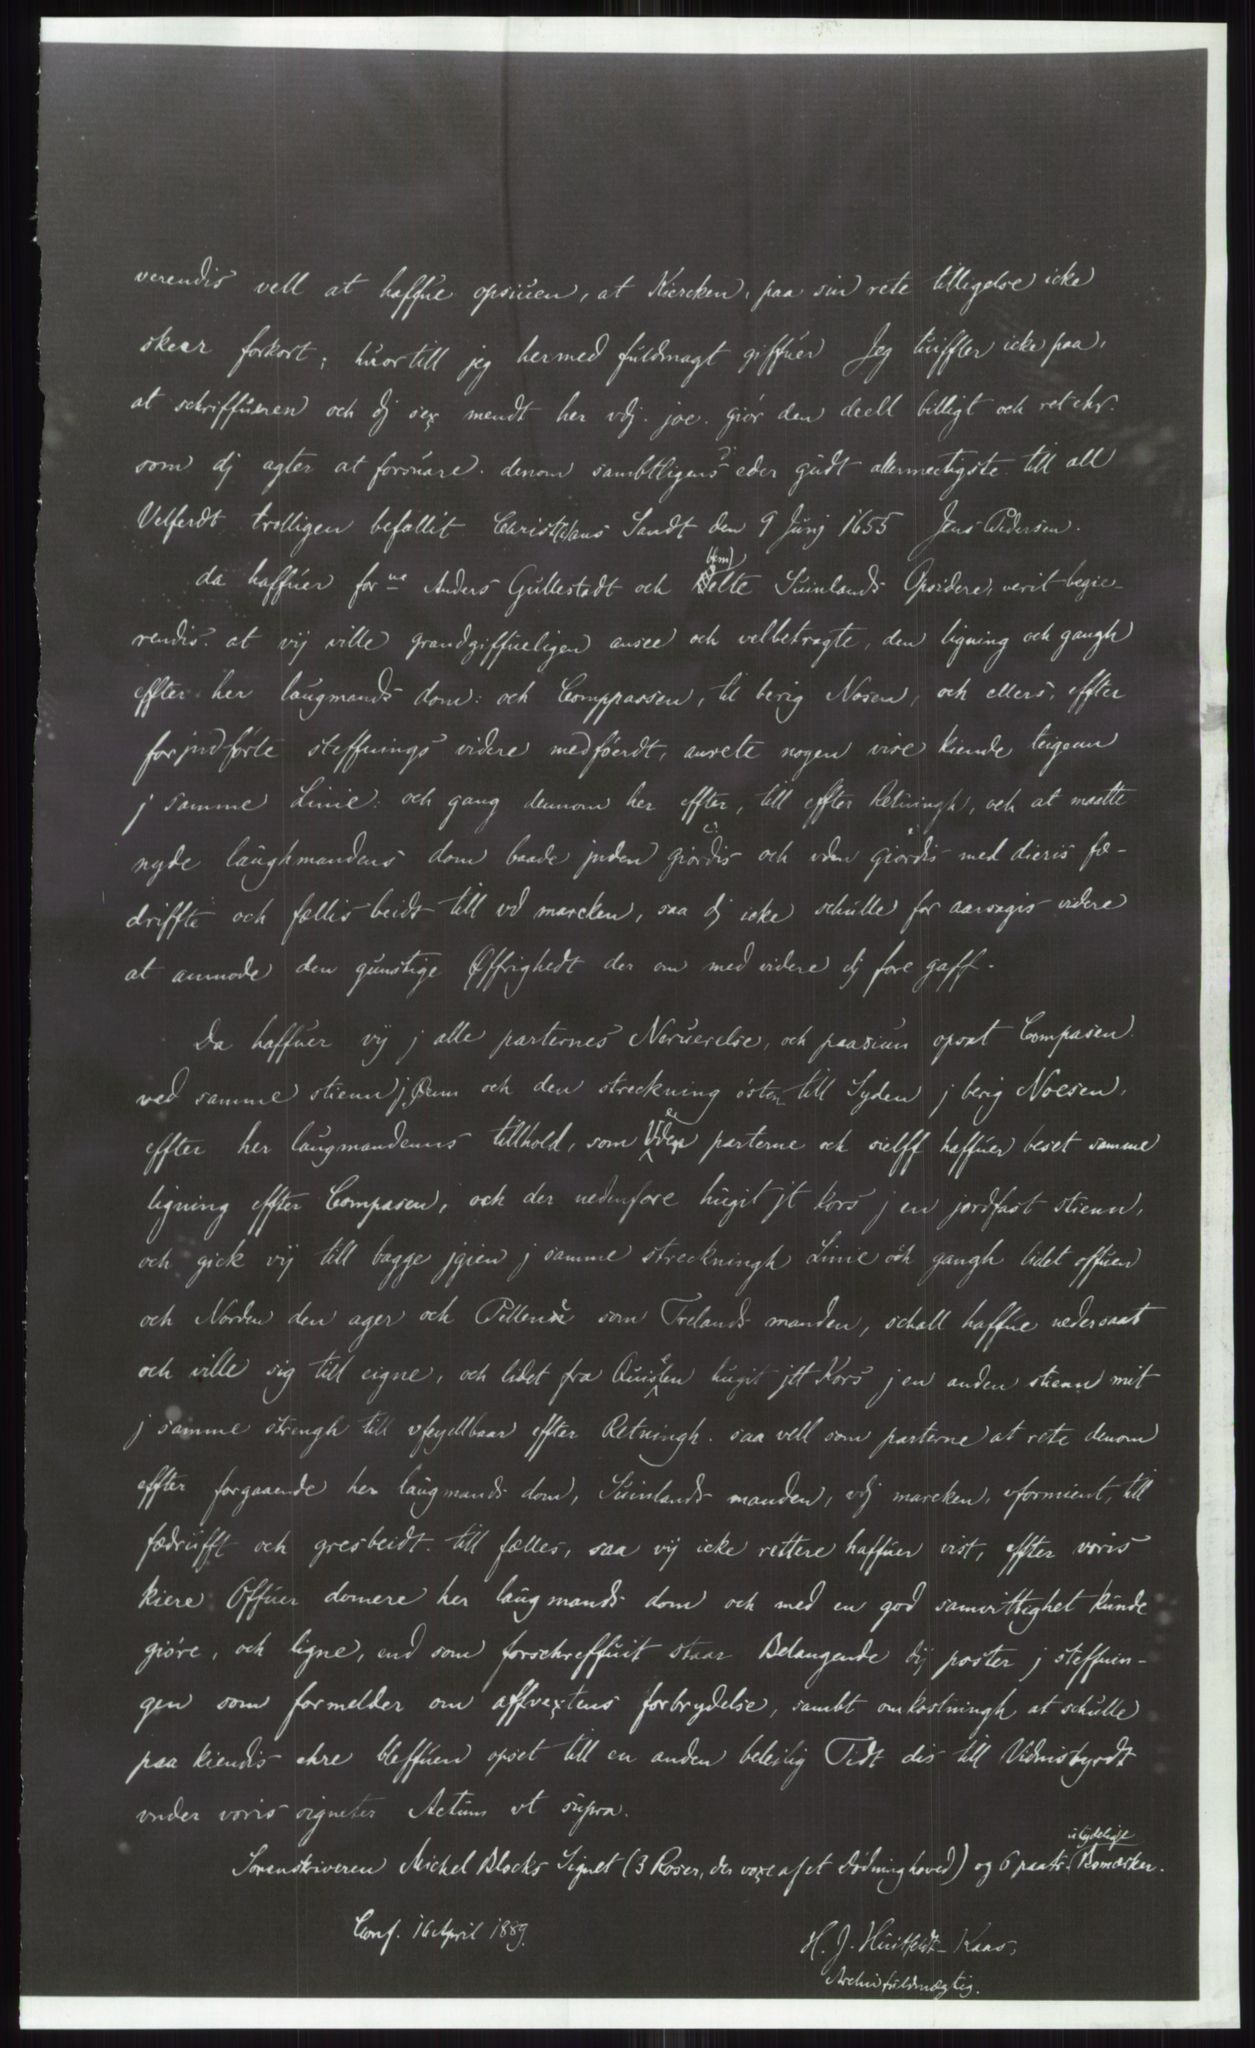 verendis vell at haffue opsiuen, at Kiercken, paa sin rete tilligelse icke
skeer forkort; huortill jeg hermed fuldmagt giffuer Jeg tuiffler icke paa,
at schriffueren och dj sex mendt her vdj. joe. giör den deell billigt och ret chr.
som dj agter at forsuare. denom sambtligens? eder gudt allermectigste till all
Velferdt trolligen befallit Christians Sandt den 9 Junj 1655 Jens Pedersen.
da haffuer for ne Anders Gullestadt och (bem) delte Suinlands Opsidere, verit begie-
rendis. at vij ville grandgiffueligen ansee och velbetragte, den ligning och gangh
effter her laugmands dom: och Comppassen, til berig Nosen, och ellers, effter
forjndförte steffnings videre medföerdt, anrete nogen vise kiende teigenn
j samme Linie: och gang dennom her effter, till effter Retningh, och at maatte
nyde laughmandens dom baade jnden giördis och vden giördis med dieris fæ-
driffte och fællis beidt till vd marcken, saa dj icke schulle for aarsagis videre
at anmode den gunstige Øffrighedt der om med videre dj fore gaff.
Da haffuer vij j alle parternes Neruerelse, och paasiun opsat Compasen
ved samme stienn j Øenn och den streckning östen till Syden j berig Noesen,
effter her laugmandenns tillhold, som parterne och sielff haffuer beset samme
ligning effter Compasen, och der nedenfore hugit jt kors j en jordfast stienn,
och gick vij till bagge jgien j samme streckningh Linie och gangh lidet offuen
och Norden den ager och Pellene som Frelands manden, schall haffue nedersaat
och ville sig till eigne, och lidet fra Quisten hugit jtt Kors j en anden stienn mit
j samme strengh till vfeydlbaar effter Retningh. saa vell som parterne at rete denom
effter forgaaende her laugmands dom, Suinlands manden, vdj marcken, vformient, till
fædriufft och gresbeidt till fælles, saa vij icke rettere haffuer vist, effter voris
kiere Offuer domere her laugmands dom och med en god samvittighet kunde
giöre, och ligne, end som forschreffuit staar Belangende dij poster j steffnin-
gen som formelder om affvextens forbrydelse, sambt omkostningh at schulle
paa kiendis ehre bleffuen opset till en anden beleilig Tidt dis till Vidnisbyrdt
vnder voris signeter Actum vt supra.
Sorenskriveren Michel Blocks Signet (3 Roser, der voxe af et Dødninghoved) og 6 paatr. utydelige Bomærker.
Conf. 16 April 1889.
H. J. Huitfeldt-Kaas,
Archivfuldmægtig.